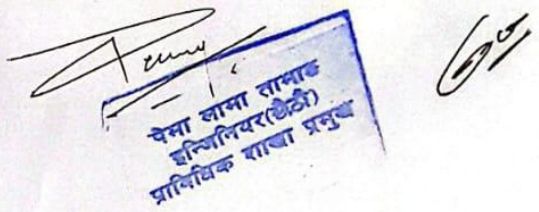 पेमा लामा तामाङ
इन्जिनियर(छैठौं)
प्राविधिक शाखा प्रमुख